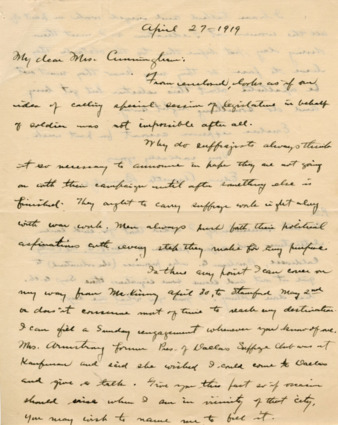 April 27-1919
My dear Mrs. Cunningham:
From enclosed, looks as if an
idea of calling special session of legislature in behalf
of soldier was not impossible after all.
Why do suffragists always think
it so necessary to announce in paper they are not going
on with their campaign until after something else is
finished. They ought to carry suffrage work right along
with war work. Men always push both their political
aspirations with every step they make for any purpose.
Is there any point I can cover on
my way from McKinney April 30, to Stamford, May 2nd
or does it consume most of time to reach my destination
I can fill a Sunday engagement whenever you know of one.
Mrs. Armstrong former Pres. of Dallas Suffrage Club was at
Kaufman and said she wished I could come to Dallas
and give a talk. Give you this fact so if occasion
should arise when I am in vicinity of that city,
you may wish to name me to fill it.